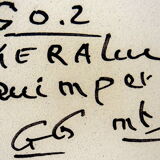 GO.2
KERAlu
Quimper
GG mk